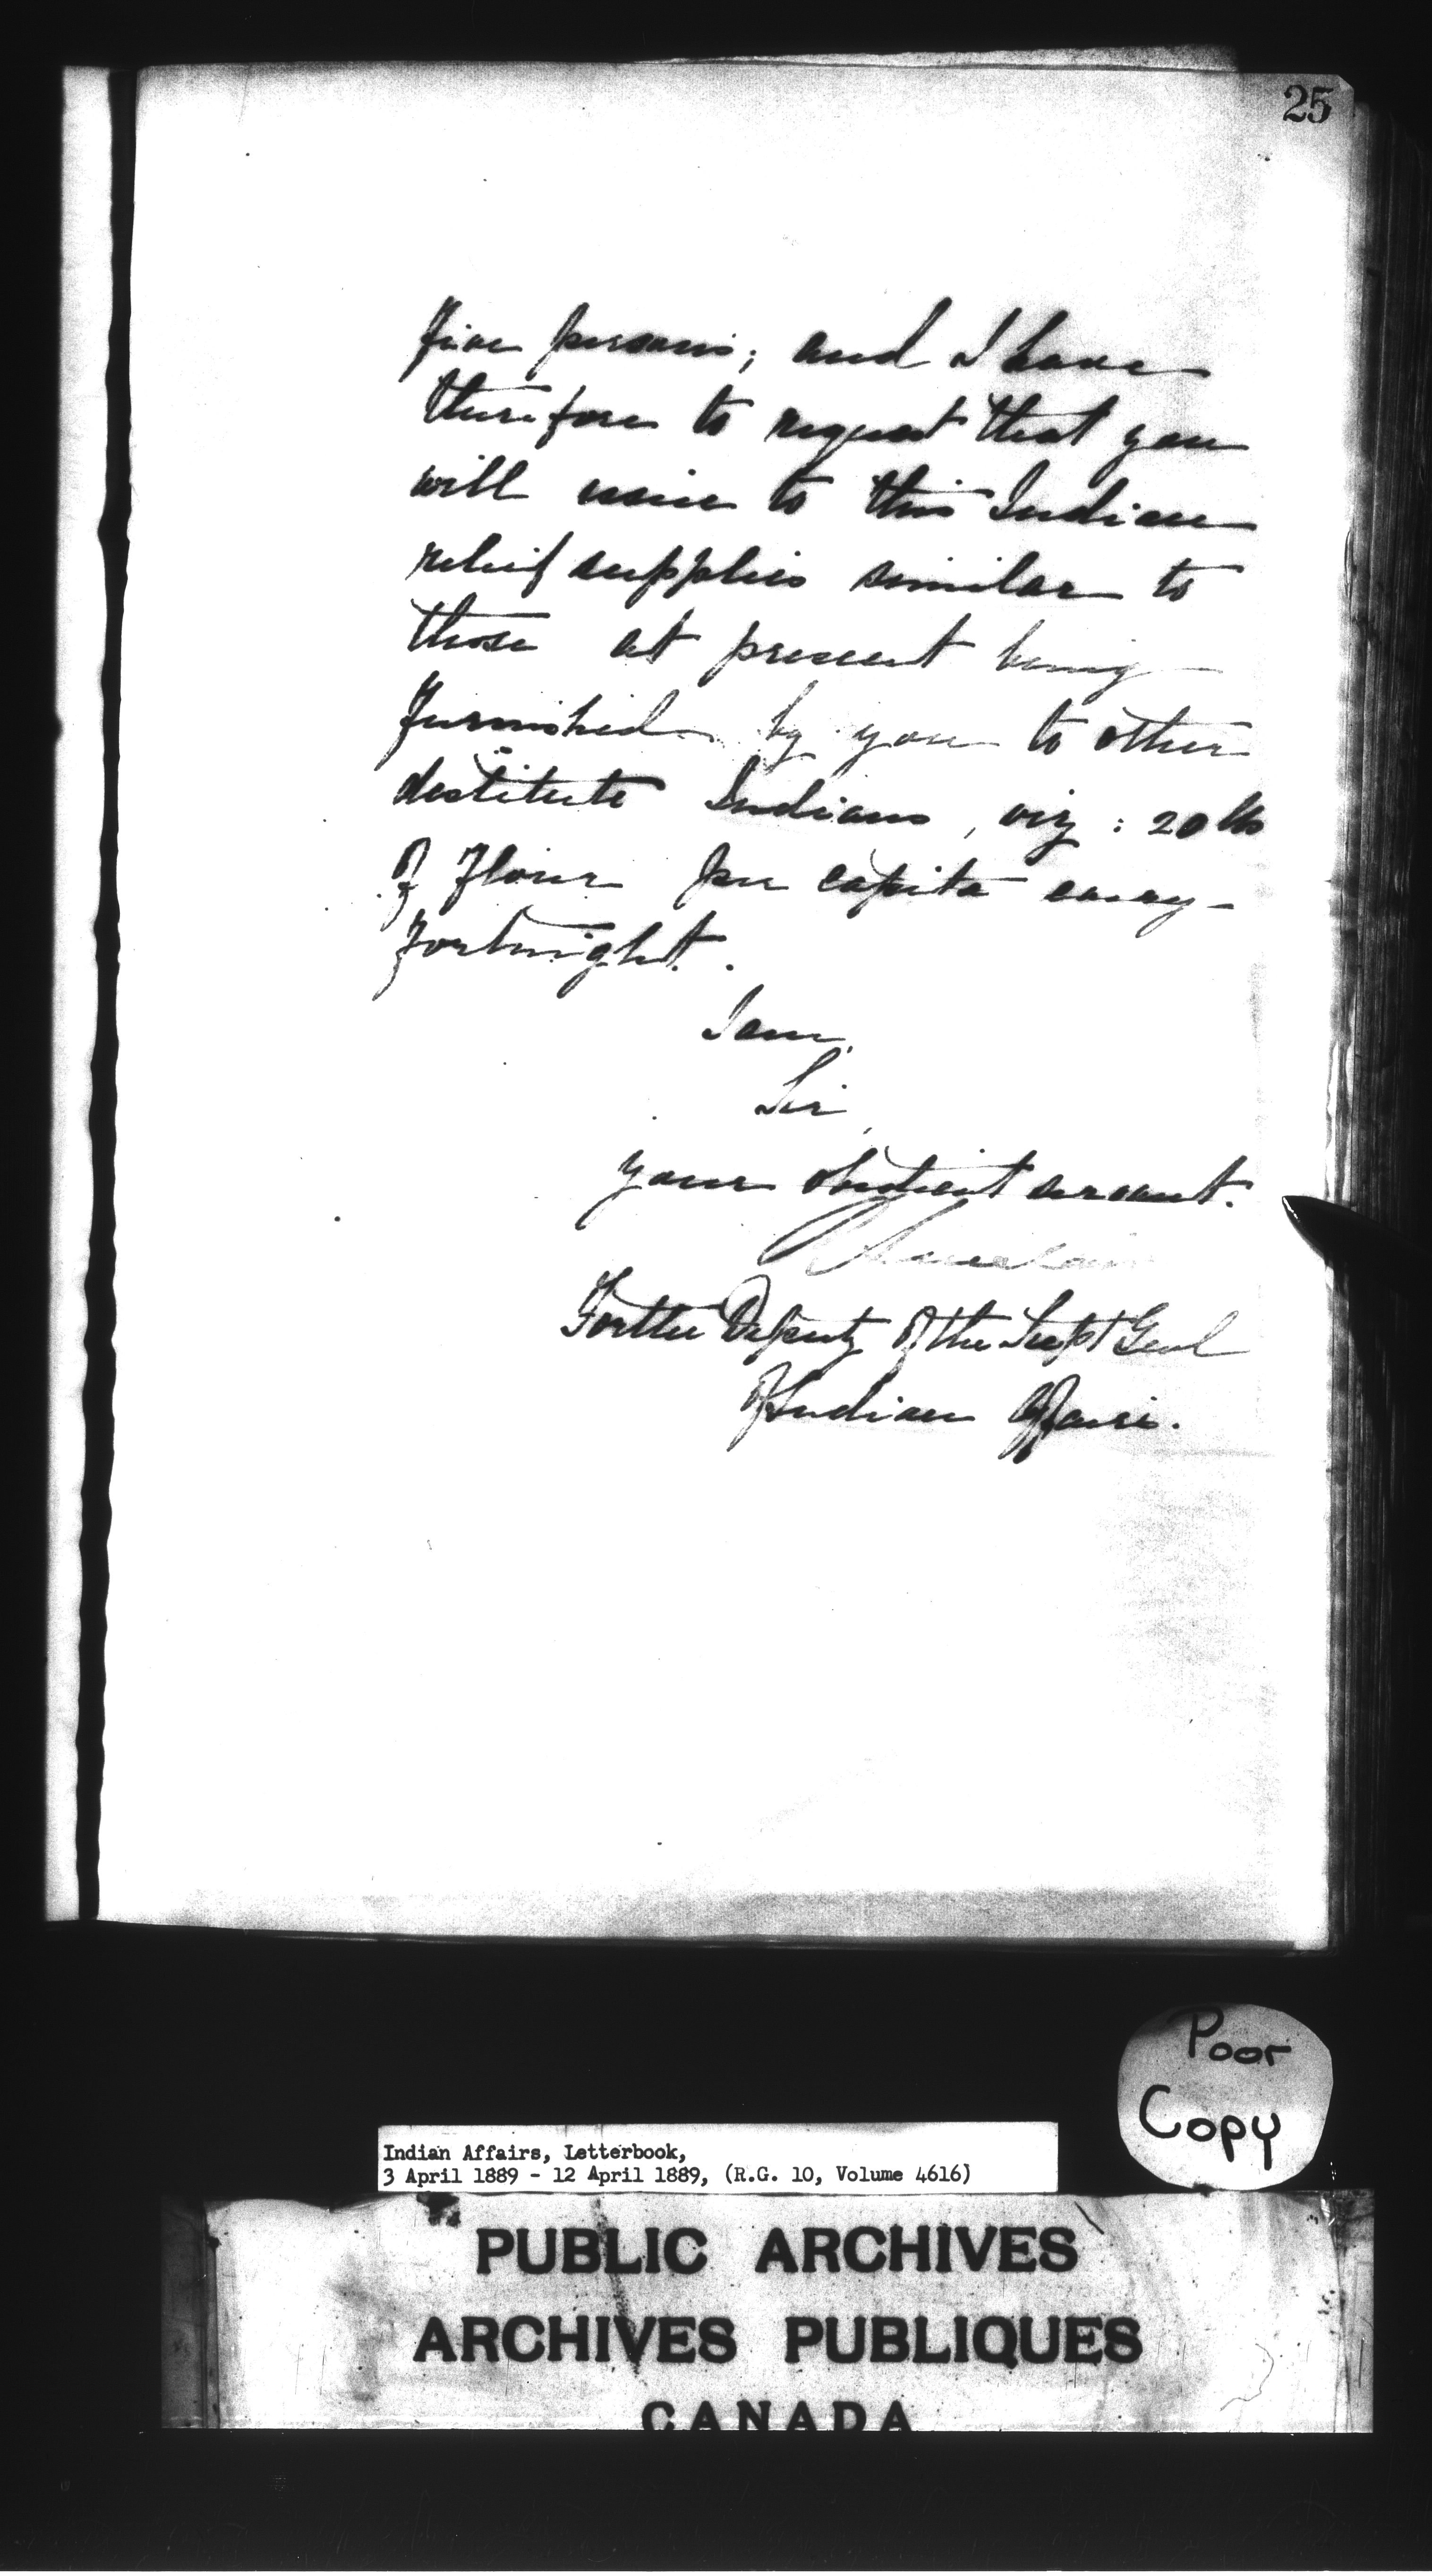 25
five persons; and I have
therefore to request that you
will issue to this Indian
relief supplies similar to
those at present being
furnished by you to other
destitute Indians, viz: 20 lbs
of Flour per capita every
fortnight.
I am,
Sir,
your obedient servant.
For the Deputy of the Supt Genl
of Indian Affairs.
Poor
Copy
Indian Affairs, Letterbook,
3 April 1889 - 12 April 1889, (R.G. 10, Volume 4616)
PUBLIC ARCHIVES
ARCHIVES PUBLIQUES
CANADA